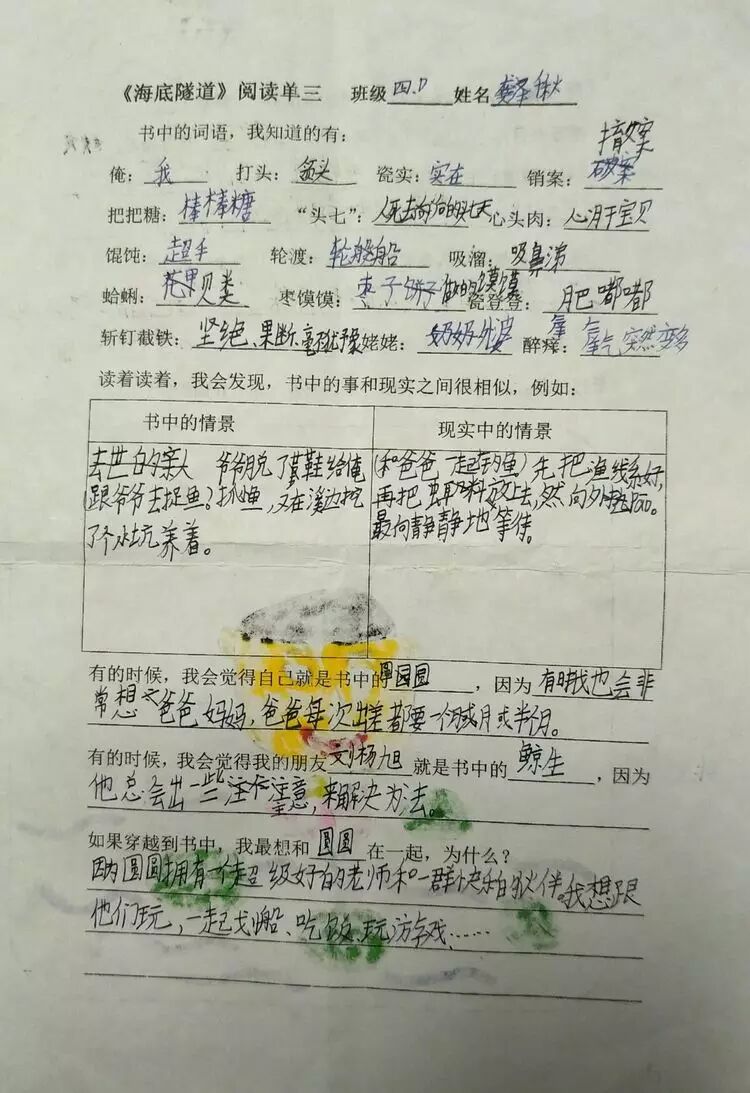 《海底隧道》阅读单三 班级四.1 姓名
书中的词语，我知道的有：
俺：我 打头： 瓷实：实在 销案：破案
把把糖：棒棒糖 “头七”：人死去后的头七天 心头肉：心肝宝贝
馄饨：超手 轮渡：轮船 吸溜：吸鼻涕
蛤蜊：贝类 枣馍馍：枣子饼子做的馍馍 瓷登登：肥嘟嘟
斩钉截铁：坚绝、果断、毫不犹予 姥姥：奶奶外婆 醉痒：氧气突然变多
读着读着，我会发现，书中的事和现实之间很相似，例如：
书中的情景 现实中的情景
去世的亲人 爷爷脱了鞋给俺
(跟爷爷去捉鱼)抓鱼，又在溪边挖
了个水坑养着。
(和爸爸一起钓鱼)先把渔线系好，
再把放上去，然向外
最向静静地等待。
有的时候，我会觉得自己就是书中的圆圆，因为有时我也会非
常想爸爸妈妈，爸爸每次出差都要一个月或半个月。
有的时候，我会觉得我的朋友刘杨旭就是书中的鲸生，因为
他总会出一些注意，来解决办法。
如果穿越到书中，我最想和圆圆在一起，为什么？
因为圆圆拥有一个超级好的老师和一群快乐的伙伴。我想跟
他们玩，一起划船、吃饭、玩游戏……